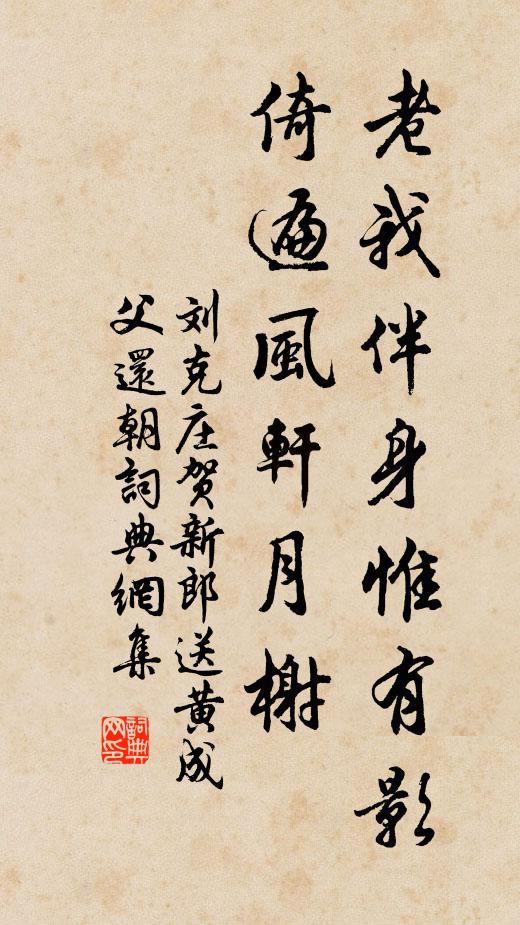 老我伴身惟有影
倚遍風軒月榭
刘克庄贺新郎送黄成
父還朝詞典網集
詞典网印